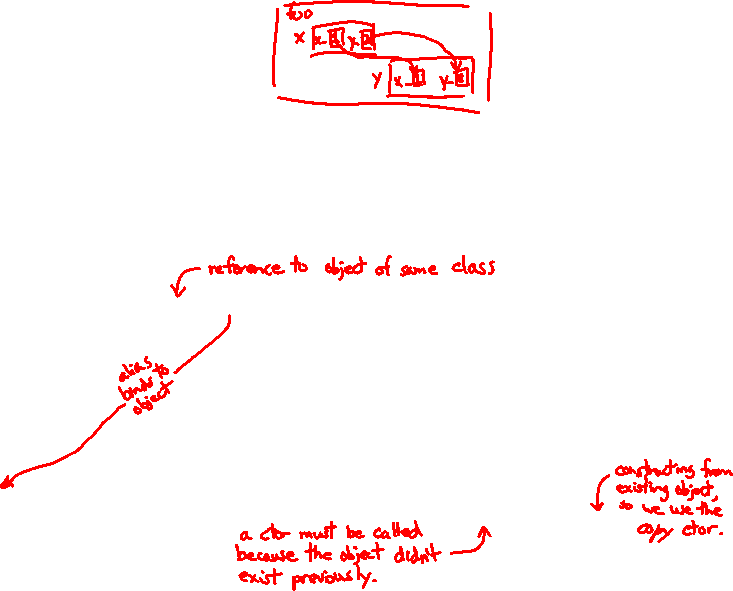 foo
x x_ 1 y_ 2
y x_ 1 y_
reference to object of same class
alias
binds to
object
constructing from
existing object,
so we use the
copy ctor.
a ctor must be called
because the object didn't
exist previously.